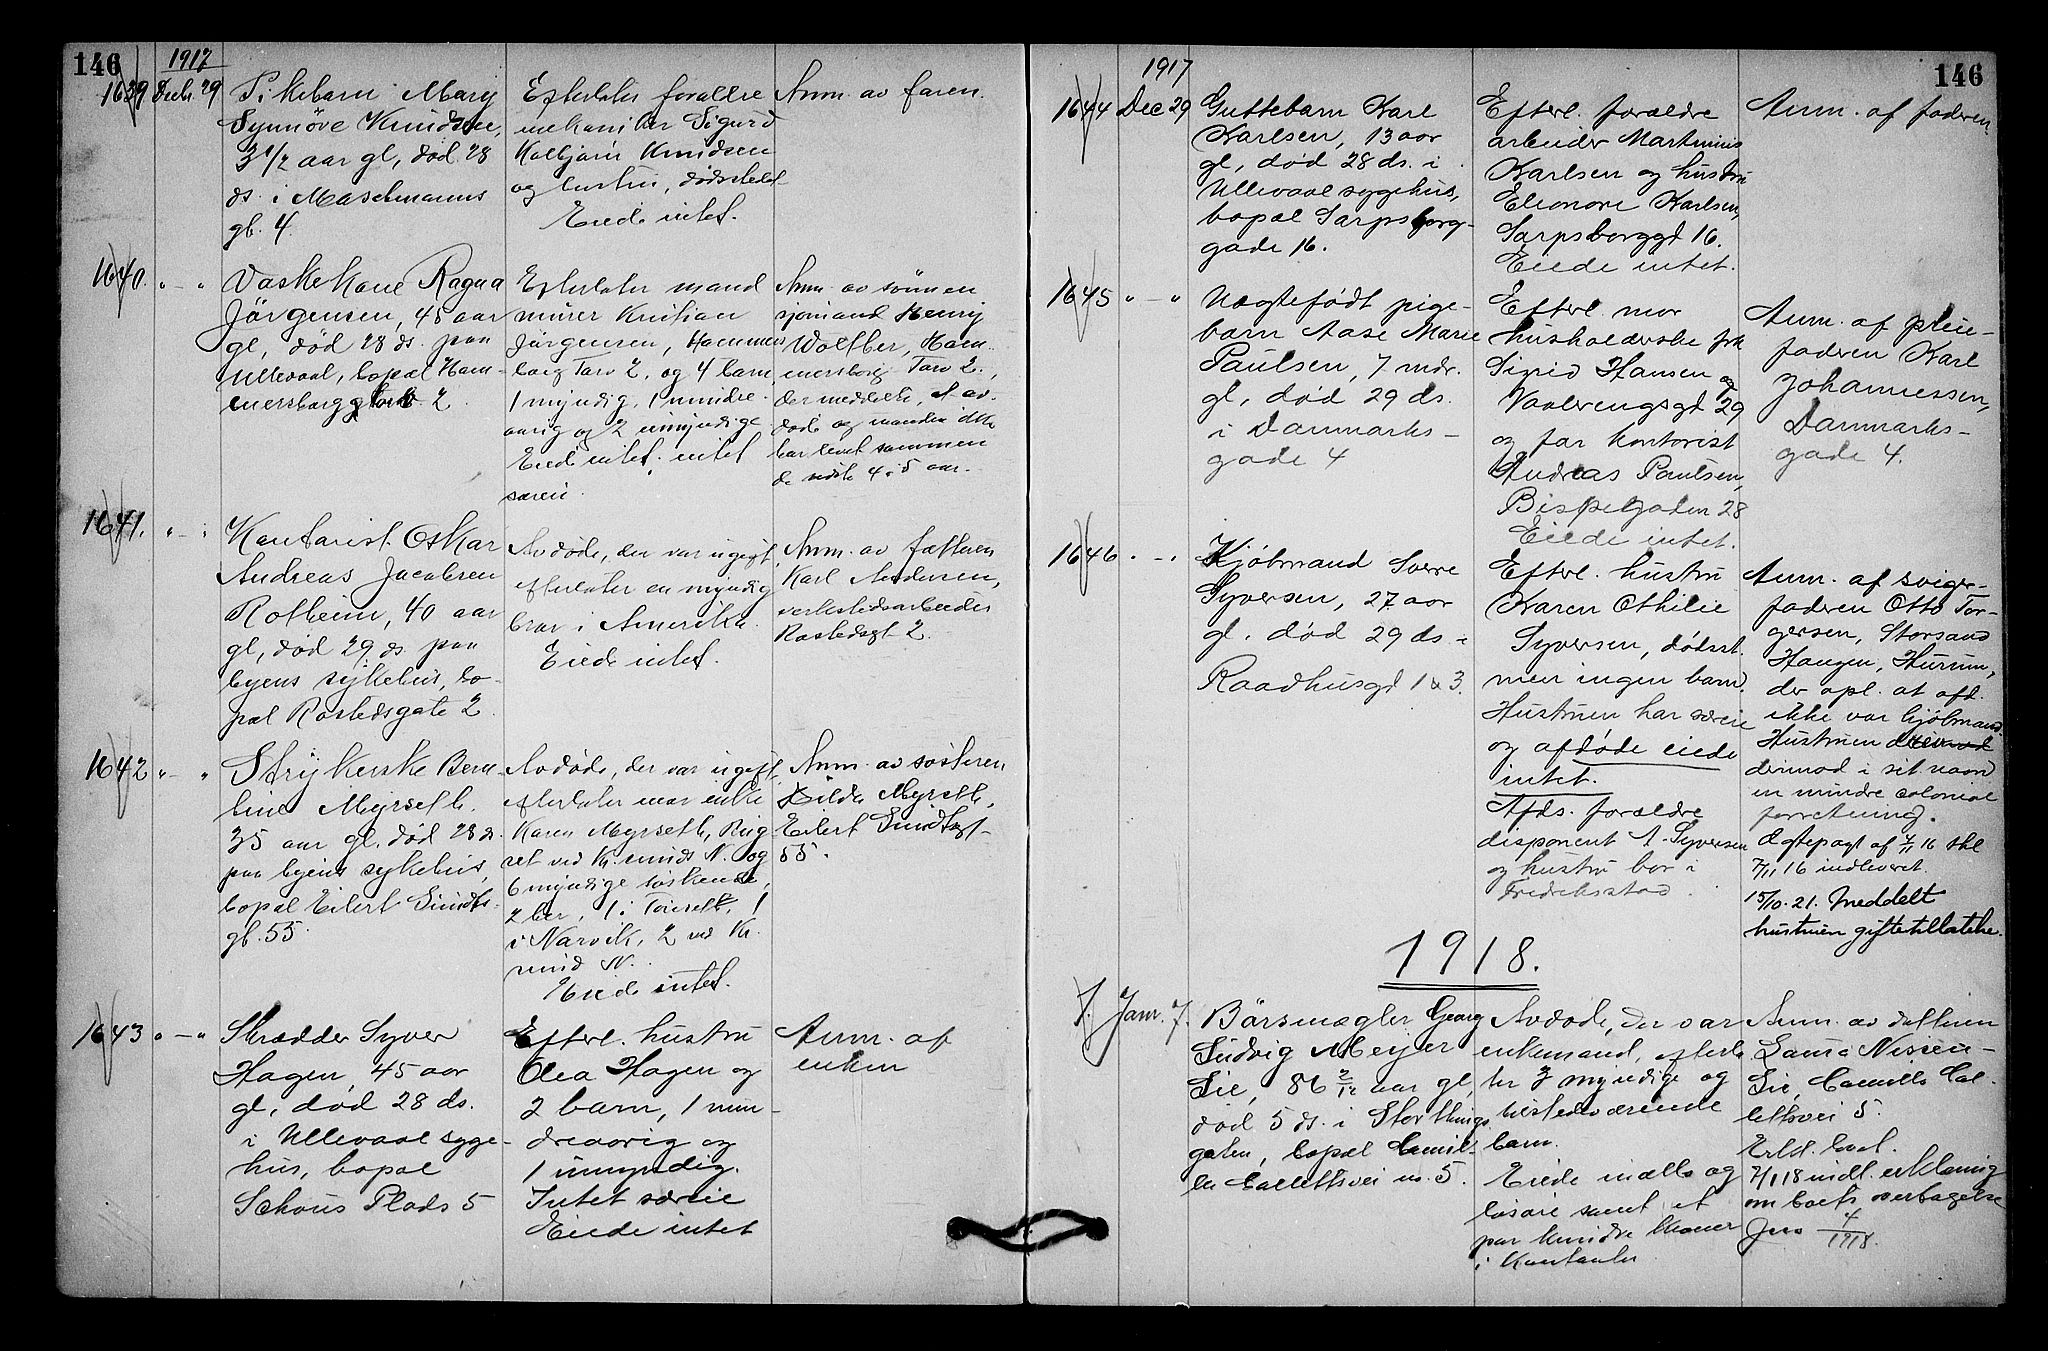 146
1917
1639
Decbr. 29
Pikebarn Mary
Synnöve Knudsen,
3 1/2 aar gl, död 28
ds. i Maschmanns
gt. 4.
Efterlater forældre
mekaniker Sigurd
Kolbjørn Knudsen
og hustru, dödsstedet
Eiede intet.
Anm. av faren.
1640. " - "
Vaskekone Ragna
Jörgensen, 45 aar
gl, död 28 ds. paa
Ullevaal, bopæl Ham-
mersborg torv 2.
Efterlater mand
murer Kristian
Jörgensen, Hammers
borg Torv 2, og 4 barn,
1 myndig, 1 mindre-
aarig og 2 umyndige
Eiede intet; intet
særeie.
Anm. av sönnen
sjömand Henry
Woltber, Ham-
mersborg Torv 2.,
der meddelte, at av-
döde og manden ikke
har levet sammen
de sidste 4 à 5 aar.
1641. " - "
Kontorist Oskar
Andreas Jacobsen
Rotheim, 40 aar
gl, död 29 ds. paa
byens sykehus, bo-
pæl Rostedsgate 2
Avdöde, der var ugift,
efterlater en myndig
bror i Amerika.
Eiede intet.
Anm. av fætteren
Karl Andersen,
verkstedsarbeider
Rostedsgt 2.
1642 " - "
Strykerske Bern-
tine Myrseth.
35 aar gl, död 28 ds.
paa byens sykehus,
bopæl Eilert Sundts-
gt. 55.
Avdöde, der var ugift,
efterlater mor enke
Karen Myrseth, Ring
set ved Kr.sunds N. og
6 myndige söskende,
2 her, 1 i, 1
i Narvik, 2 ved Kr.
sund N.
Eiede intet.
Anm. av sösteren
Hilda Myrseth,
Eilert Sundtsgt-
55.
1643 " - "
Skrædder Syver
Hagen, 45 aar
gl, död 28 ds.
i Ullevaal syge-
hus, bopæl
Schous Plads 5
Efterl. hustru
Olea Hagen og
2 barn, 1 min-
dreaarig og
1 umyndig.
Intet særeie
Eiede intet
Anm. af
enken
1917
146
1644 Dec 29
Guttebarn Karl
Karlsen, 13 aar
gl, död 28 ds. i
Ullevaal sygehus,
bopæl Sarpsborg-
gade 16.
Efterl. forældre
arbeider Martinius
Karlsen og hustru
Elionore Karlsen,
Sarpsborggd 16.
Eiede intet.
Anm. af faderen
1645 " - "
Uægtefødt pige-
barn Aase Marie
Paulsen, 7 mdr.
gl, död 29 ds.
i Danmarks-
gade 4
Efterl. mor
husholderske frk
Sigrid Hansen
Vaalerengsgd 29
og far kontorist
Andreas Paulsen,
Bispegaten 28
Eiede intet.
Anm. af pleie-
faderen Karl
Johannessen,
Danmarks-
gade 4.
1646 " - "
Kjöbmand Sverre
Syversen, 27 aar
gl. død 29 ds. i
Raadhusgd 1 & 3.
Efterl. hustru
Karen Othilie
Syversen, dödsst.
men ingen barn.
Hustruen har særeie
og afdöde eiede
intet.
Afds. forældre
disponent A. Syversen
og hustru bor i
Fredriksstad.
Anm. af sviger-
faderen Otto Tor-
gersen, Storsand
Haugen, Hurum,
der opl. at afd.
ikke var kjöbmand.
Hustruen
derimod i sit navn
en mindre colonial
forretning.
Ægtepagt af 2/11 16 thl
7/11 16 indleveret.
15/10. 21. Meddelt
hustruen giftetilladelse.
1918.
1. Janr. 7.
Börsmægler Georg
Ludvig Meyer
Lie, 86 2/12 aar gl,
död 5 ds. i Storthings
gaten, bopæl Camil-
la Collettsvei nr. 5.
Avdöde, der var
enkemand, efterla-
ter 3 myndige og
tilstedeværende
barn.
Eiede indbo og
lösöre samt et
par hundre kroner
i kontanter
Anm. av datteren
Laura Nissen-
Lie, Camilla Col-
lettsvei 5.
7/1 18 indl. erklæring
om boets overtagelse
Jno 4/1918.